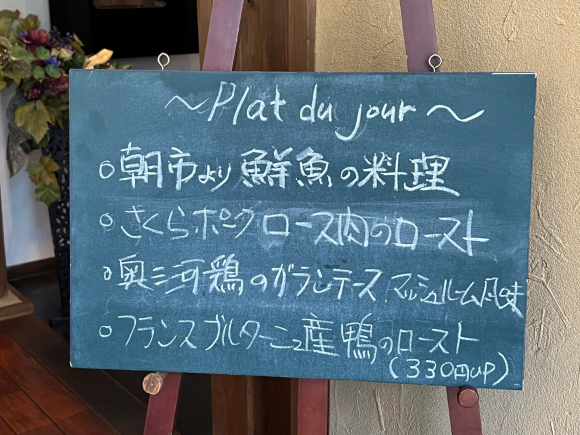 ～Plat du jour～
○朝市より鮮魚の料理
○さくらポーク ロース肉のロースト
○奥三河鶏のガランテース マッシュルーム風味
○フランスブルターニュ産鴨のロースト
(330円up)